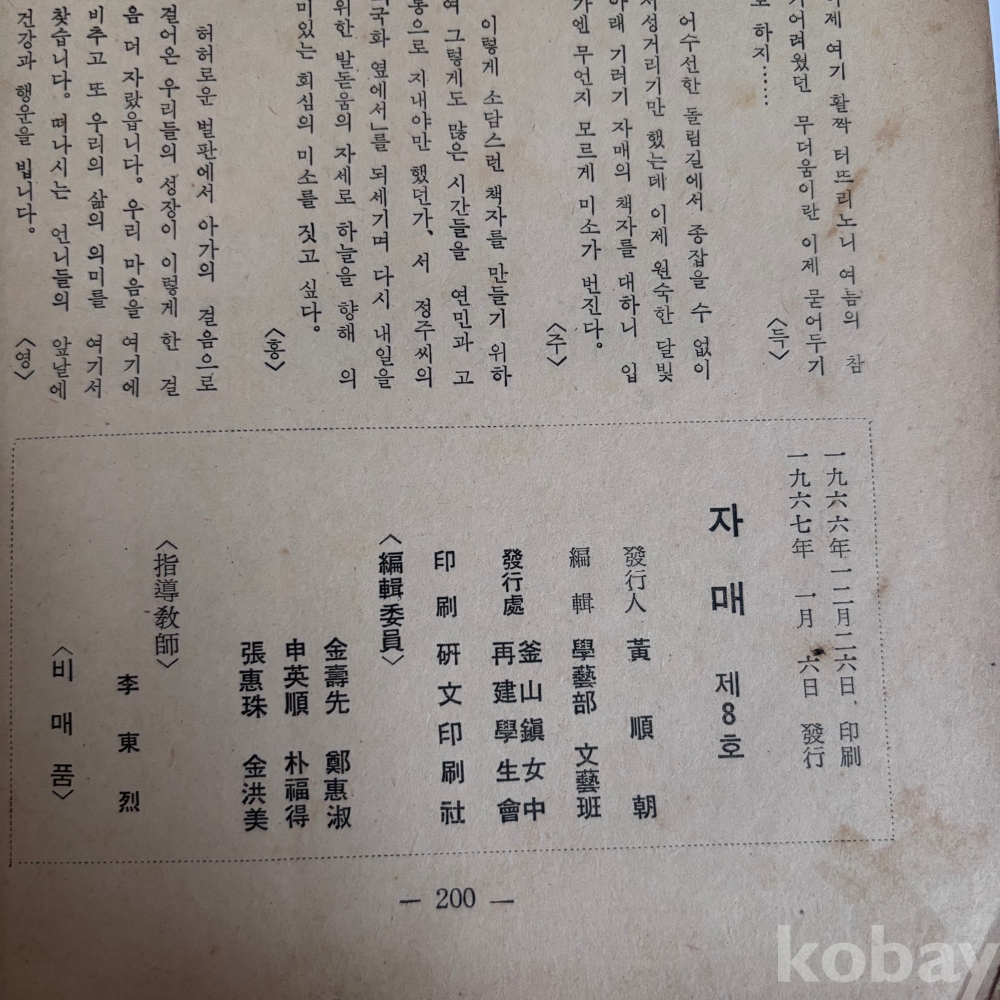 이제 여기 활짝 터뜨리노니 여늠의 참
기어려웠던 무더움이란 이제 묻어두기
로 하지……
〈득〉
어수선한 돌림길에서 종잡을 수 없이
서성거리기만 했는데 이제 원숙한 달빛
아래 기러기 자매의 책자를 대하니 입
가엔 무언지 모르게 미소가 번진다.
〈주〉
이렇게 소담스런 책자를 만들기 위하
여 그렇게도 많은 시간들을 연민과 고
통으로 지내야만 했던가, 서 정주씨의
「국화 옆에서」를 되세기며 다시 내일을
위한 발돋움의 자세로 하늘을 향해 의
미있는 회심의 미소를 짓고 싶다.
〈홍〉
허허로운 벌판에서 아가의 걸음으로
걸어온 우리들의 성장이 이렇게 한 걸
음 더 자랐읍니다. 우리 마음을 여기에
비추고 또 우리의 삶의 의미를 여기서
찾습니다. 떠나시는 언니들의 앞날에
건강과 행운을 빕니다.
〈영〉
一九六六年一二月二六日 印刷
一九六七年 一月 六日 發行
자매 제8호
發行人 黃順朝
編輯 學藝部 文藝班
發行處 釜山鎭女中
再建學生會
印刷 硏文印刷社
〈編輯委員〉
金壽先 鄭惠淑
申英順 朴福得
張惠珠 金洪美
〈指導敎師〉
李東烈
〈비매품〉
— 200 —
kobay